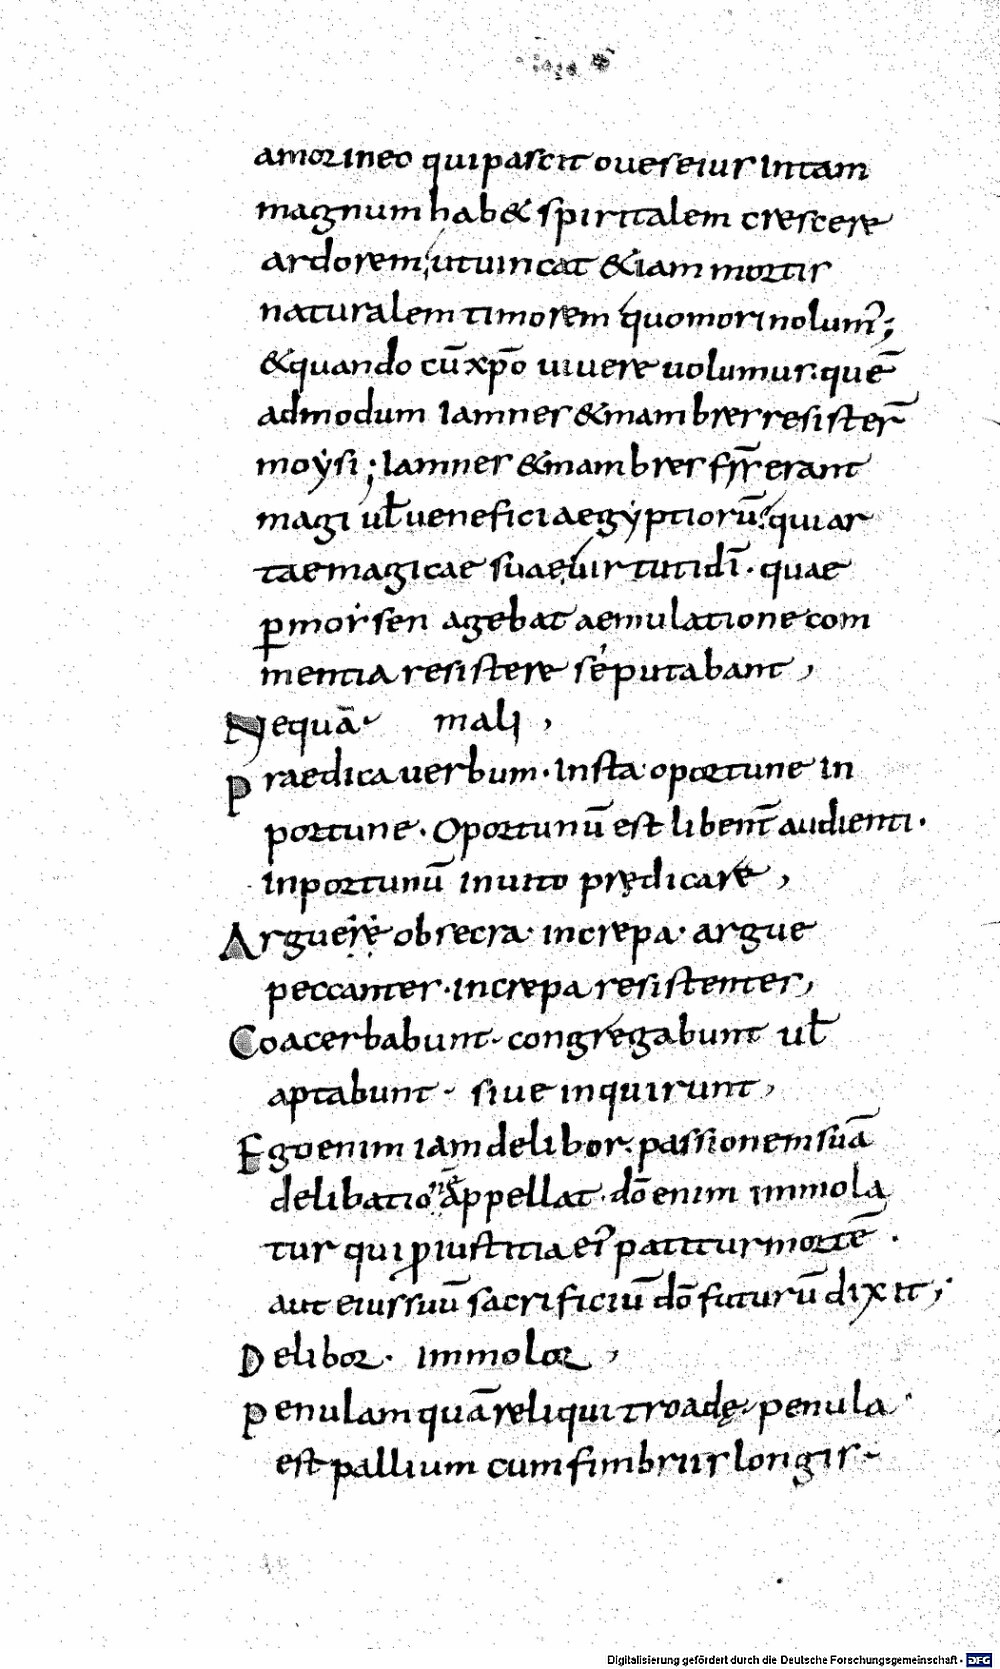 amor in eo qui pascit oues eius in tam
magnum hab& spiritalem crescere
ardorem; ut uincat &iam mortis
naturalem timorem quo mori nolum';
& quando cū xp̄o uiuere uolumus. quē
admodum iamnes & mambres resister̄
moẏsi; Iamnes & mambres fr̄r erant
magi ul̄ uenefici aegẏptiorū. qui ar
tae magicae suae uirtuti dī. quae
ꝑ moẏsen agebat aemulatione com
mentia resistere se putabant,
Nequā. mali,
Praedica uerbum. insta oportune in
portune. Oportunū est libent̄ audienti.
inportunū inuito prędicare,
Arguere obsecra. increpa. argue
peccantes. increpa resistentes,
Coacerbabunt. congregabunt ul̄
aptabunt. siue inquirunt,
Ego enim iam delibor. passionem suā
delibationē appellat. dō enim immola
tur qui ꝓ iustitia ei' patitur mortē.
aut eius suū sacrificiū dō futurū dixit;
Delibor. immolor,
Penulam quā reliqui troadę. penula
est pallium cum fimbriis longis.
Digitalisierung gefördert durch die Deutsche Forschungsgemeinschaft - DFG